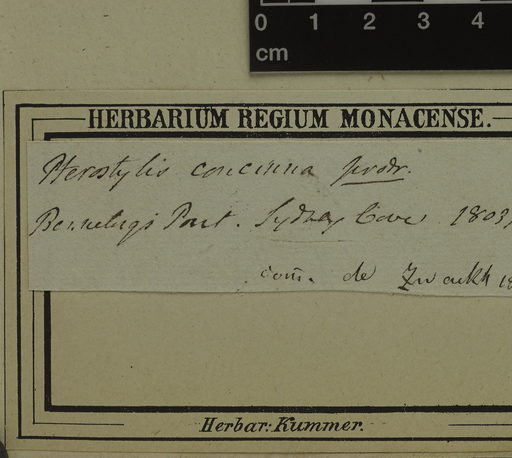 0 1 2 3 4
cm
HERBARIUM REGIUM MONACENSE.
Pterostylis concinna prodr.
Bennelugs Point. Sydney Cove 1803
com. de Zwackh 18
Herbar: Kummer.